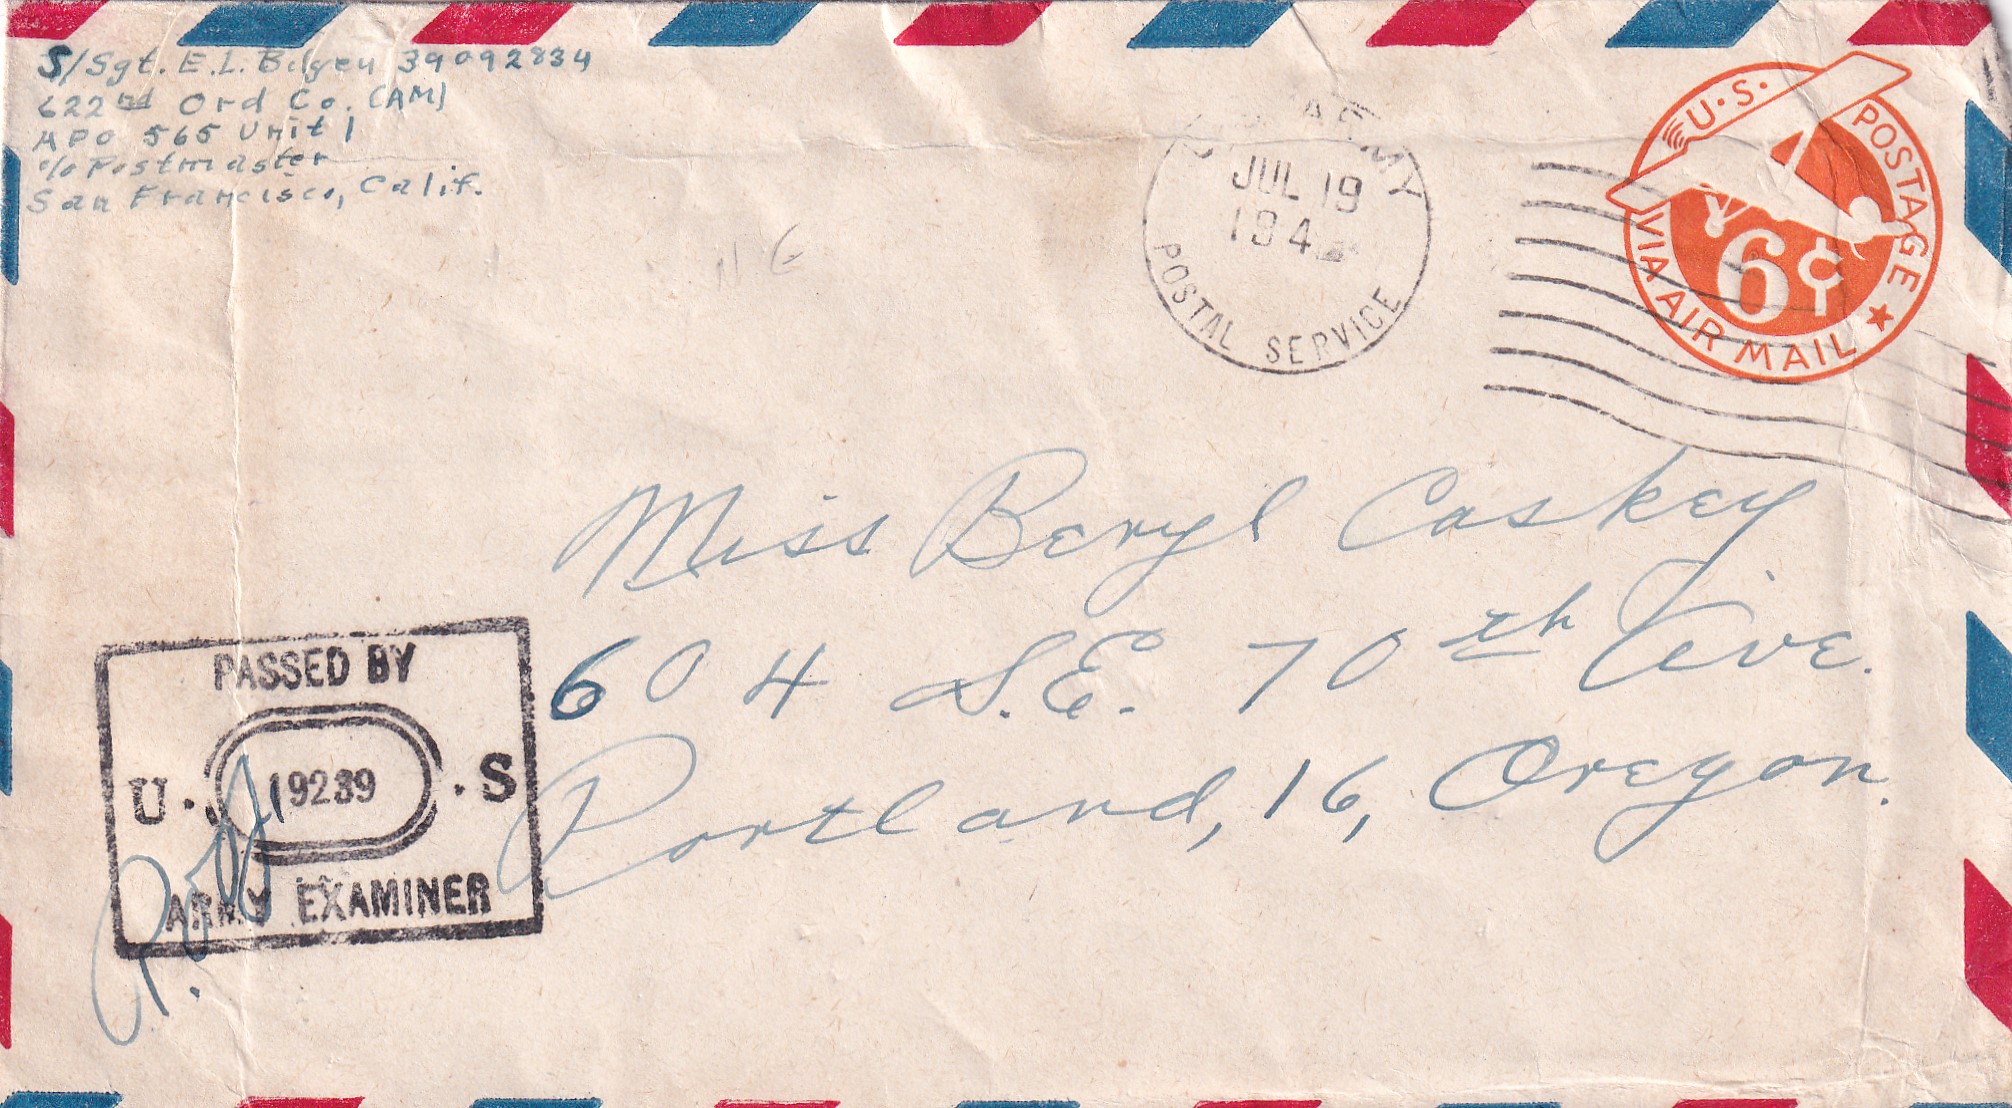 S/Sgt. E. L. 39092834
622nd Ord Co. (AM)
APO 565 Unit 1
c/o Postmaster
San Francisco, Calif.
ARMY
JUL 19
194
POSTAL SERVICE
U.S. POSTAGE
6¢
VIA AIR MAIL
Miss Beryl Caskey
604 S.E. 70th Ave.
Portland, 16, Oregon.
PASSED BY
U. 19239 .S
ARMY EXAMINER